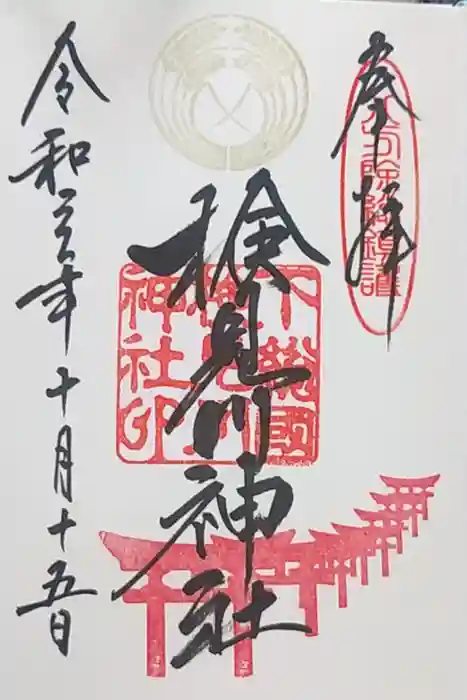 奉拝
八方除総鎮護
検見川神社
下總國
検見川
神社印
令和三年十月十五日